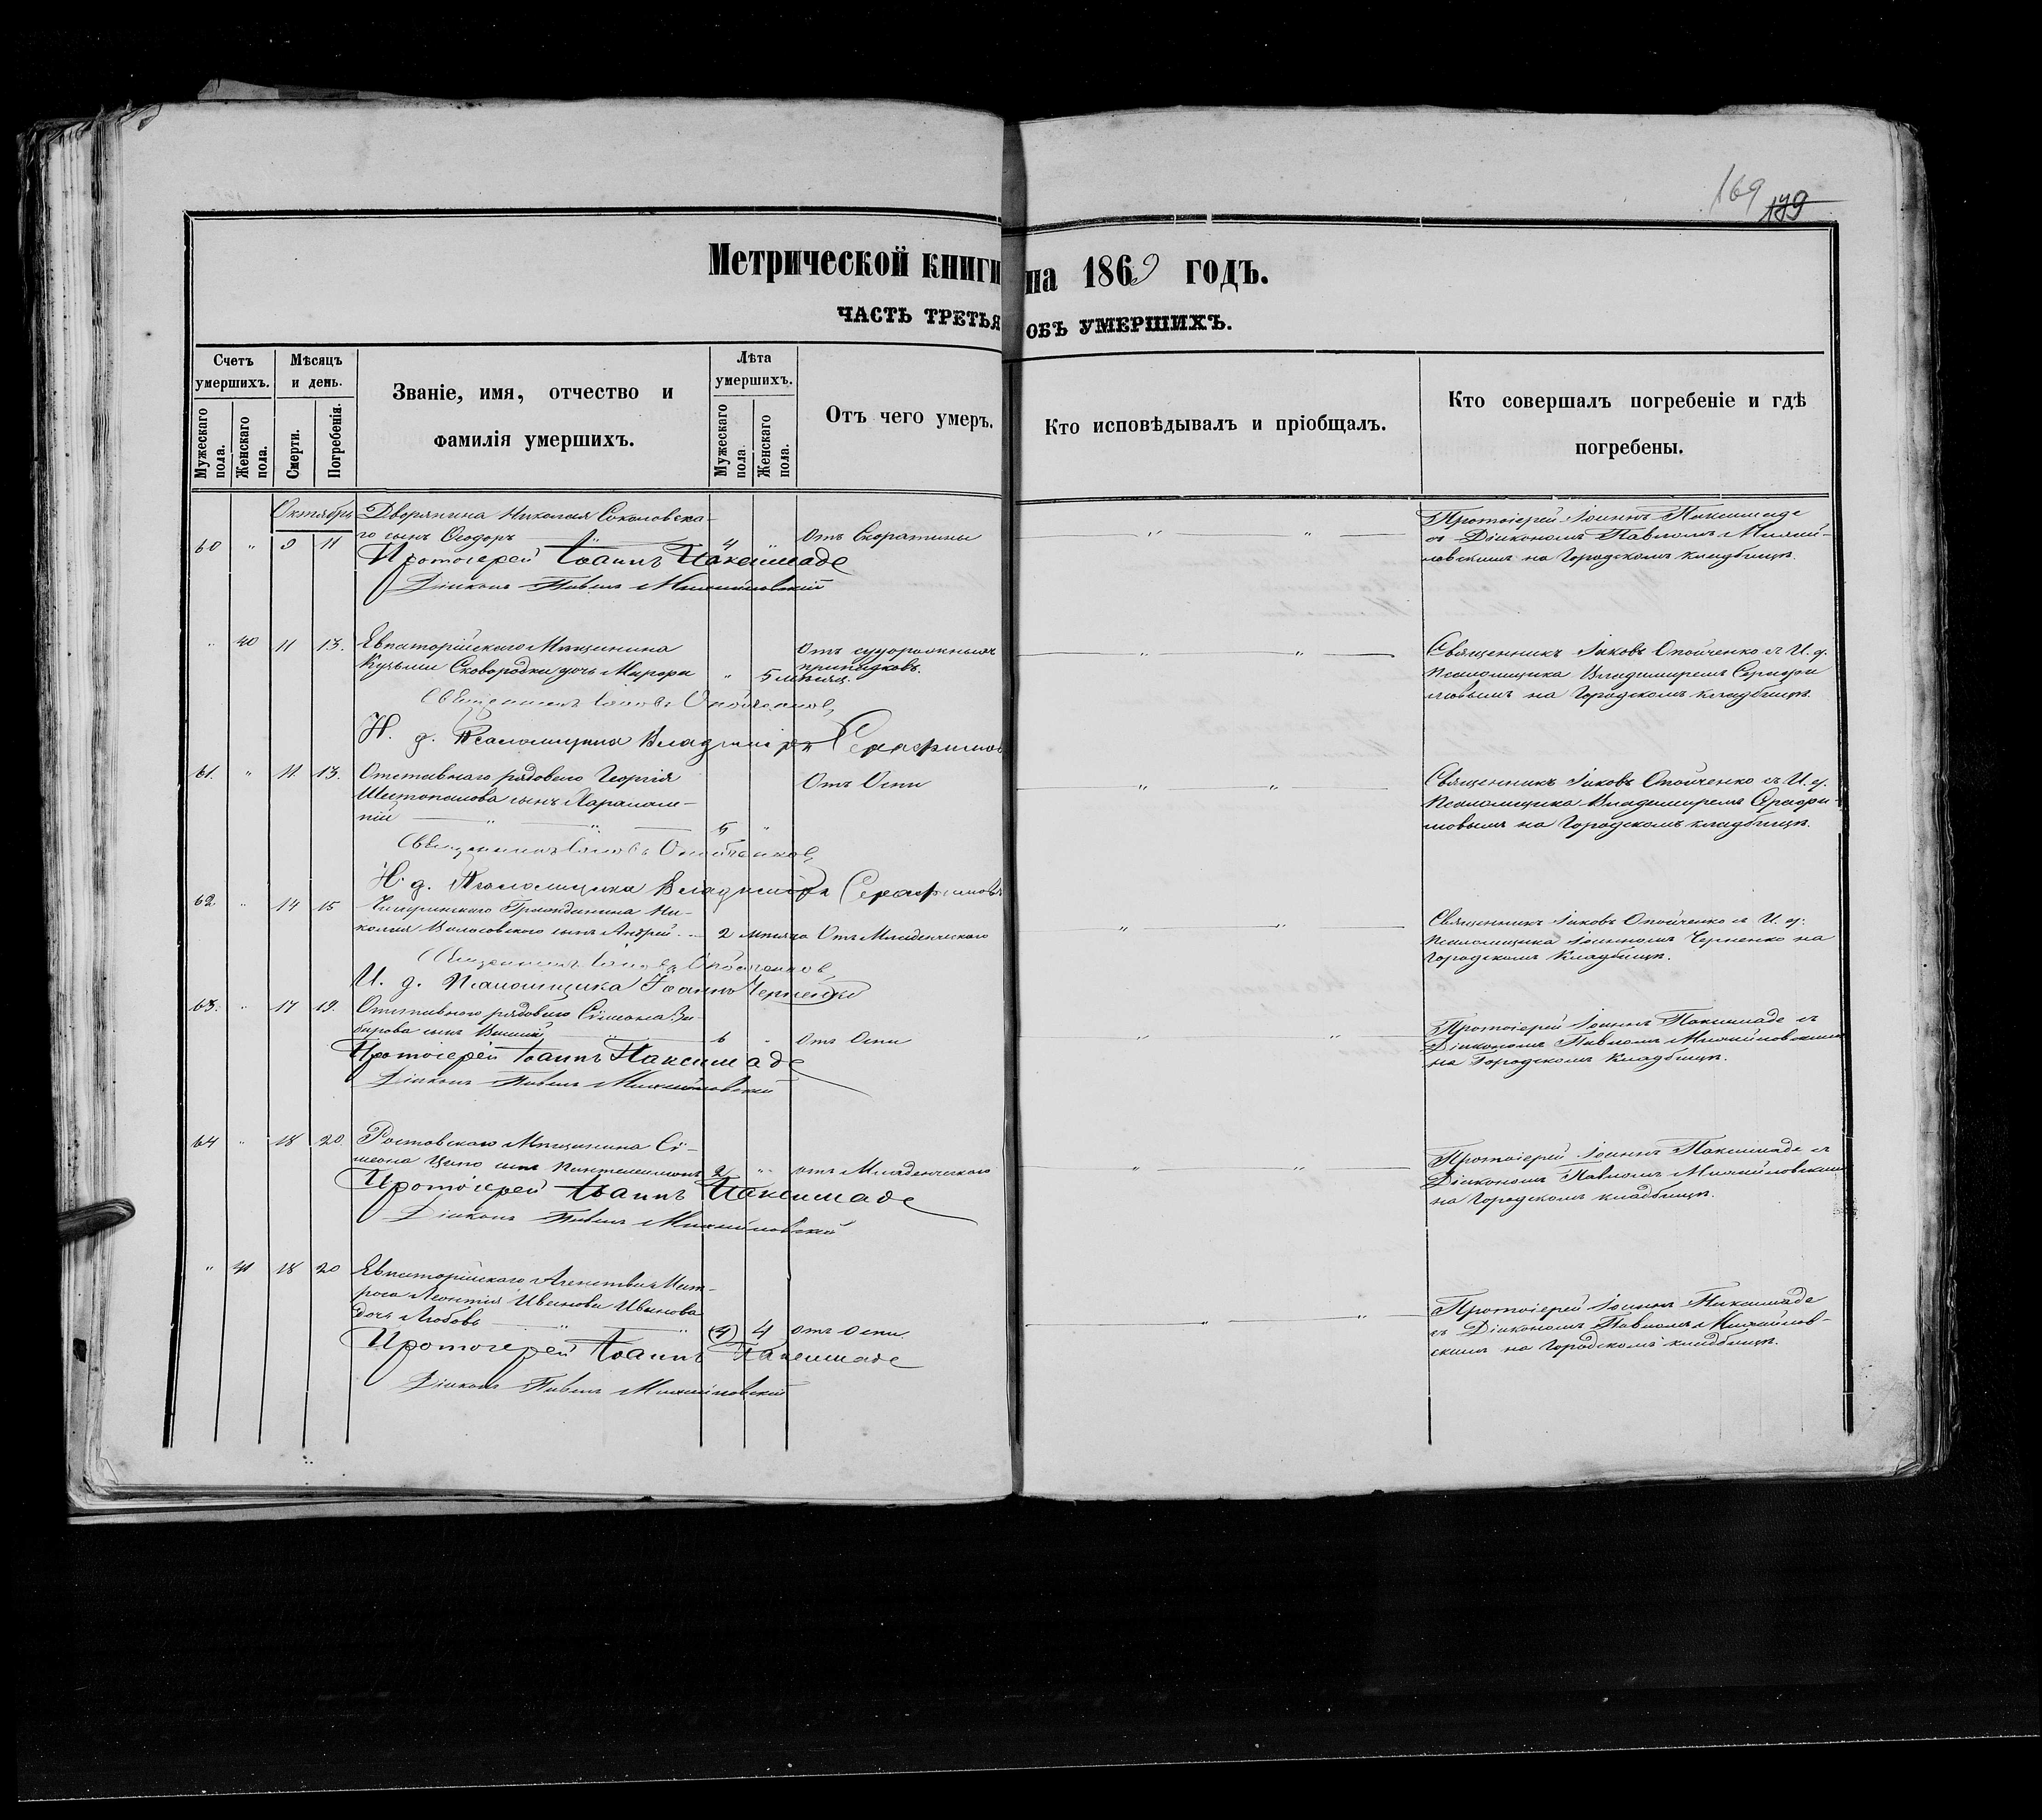 169 179
Метрической книги на 1869 годъ.
ЧАСТЬ ТРЕТЬЯ ОБЪ УМЕРШИХЪ.
Счетъ умершихъ.
Мужескаго пола.
Женскаго пола.
Мѣсяцъ и день.
Смерти.
Погребенія.
Званіе, имя, отчество и фамилія умершихъ.
Лѣта умершихъ.
Мужескаго пола.
Женскаго пола.
Отъ чего умеръ.
Кто исповѣдывалъ и пріобщалъ.
Кто совершалъ погребеніе и гдѣ погребены.
Октябрь
60 " 9 11 Дворянина Николая Соколовска-
го сынъ Ѳеодоръ 4 " Отъ Скорлатины
Протоіерей Іоаннъ Паксимаде
съ Діакономъ Павломъ Михай-
ловскимъ на Городскомъ кладбищѣ.
Протоіерей Іоаннъ Паксимаде
Діаконъ Павелъ Михайловскій
" 40 11 13. Евпаторійскаго Мѣщанина
Кузьмы Сковородки дочь " 5 мѣсяц. Отъ судорожныхъ
припадковъ.
Священникъ Іаковъ Опойченко съ И. д.
Псаломщика Владимиромъ Серафи
мовымъ на Городскомъ кладбищѣ.
Священникъ Іаковъ Опойченковъ
И. д. Псаломщика Владимиръ Серафимовъ
61. " 11. 13. Отставнаго рядоваго Георгія
Шестопалова сынъ Харалам-
пій 5 " Отъ Оспы
Священникъ Іаковъ Опойченко съ И. д.
Псаломщика Владимиромъ Серафи-
мовымъ на Городскомъ кладбищѣ.
Священникъ Іаковъ Опойченковъ
И. д. Псаломщика Владимиръ Серафимовъ
62. " 14 15 Гражданина Ни-
колая Волосовскаго сынъ Андрей 2 мѣсяца Отъ Младенческаго
Священникъ Іаковъ Опойченко съ И. д.
Псаломщика Іоанномъ Черненко на
Городскомъ Кладбищѣ.
Священникъ Іаковъ Опойченковъ
И. д. Псаломщика Іоаннъ Черненко
63. " 17 19. Отставнаго рядоваго Сѵмеона
сынъ Василій 6 " Отъ Оспы
Протоіерей Іоаннъ Паксимаде съ
Діакономъ Павломъ Михайловскимъ
на Городскомъ Кладбищѣ.
Протоіерей Іоаннъ Паксимаде
Діаконъ Павелъ Михайловскій
64 " 18 20. Ростовскаго Мѣщанина Сѵ-
меона сынъ Пантелеимонъ 2 " отъ Младенческаго
Протоіерей Іоаннъ Паксимаде съ
Діакономъ Павломъ Михайловскимъ
на Городскомъ кладбищѣ.
Протоіерей Іоаннъ Паксимаде
Діаконъ Павелъ Михайловскій
" 41 18 20 Евпаторійскаго Агенства Мат-
роса Леонтія Иванова Иванова
дочь Любовь (4) 4 отъ оспы
Протоіерей Іоаннъ Паксимаде
съ Діакономъ Павломъ Михайлов-
скимъ на Городскомъ кладбищѣ.
Протоіерей Іоаннъ Паксимаде
Діаконъ Павелъ Михайловскій